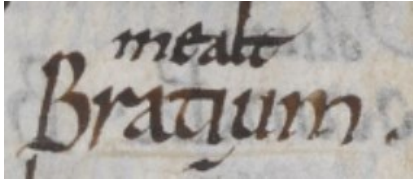 mealt
Bratium.